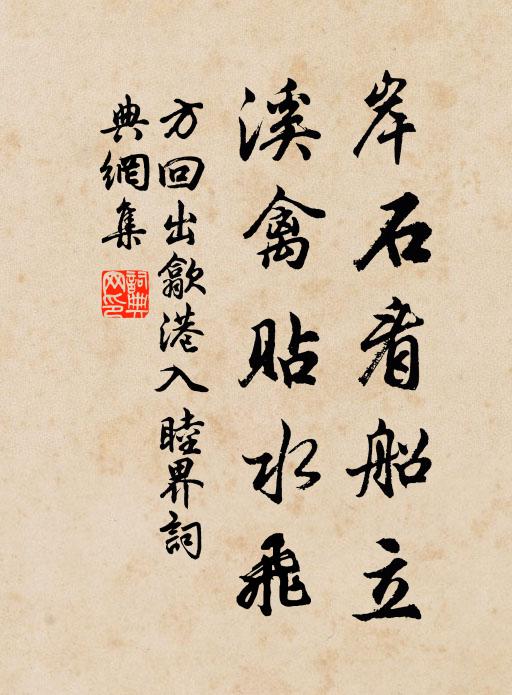 岸石看船立
溪禽貼水飛
方回出歙港入睦界詞
典網集
詞典網印